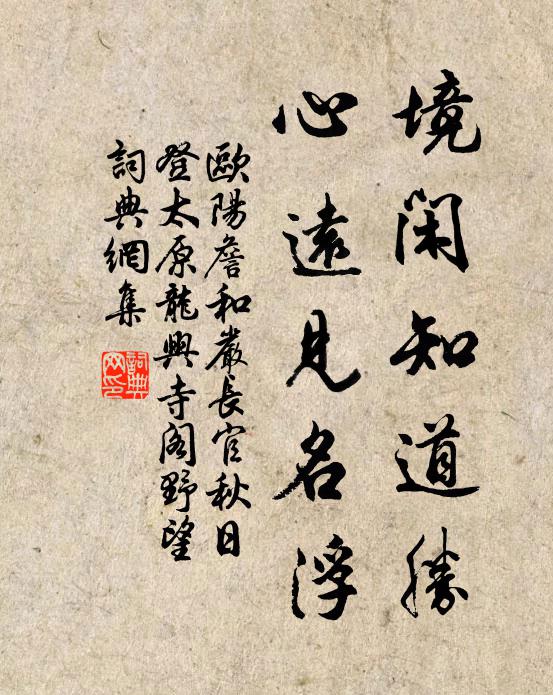 境閑知道勝
心遠見名浮
歐陽詹和嚴長官秋日
登太原龍興寺閣野望
詞典網集
詞典
网印